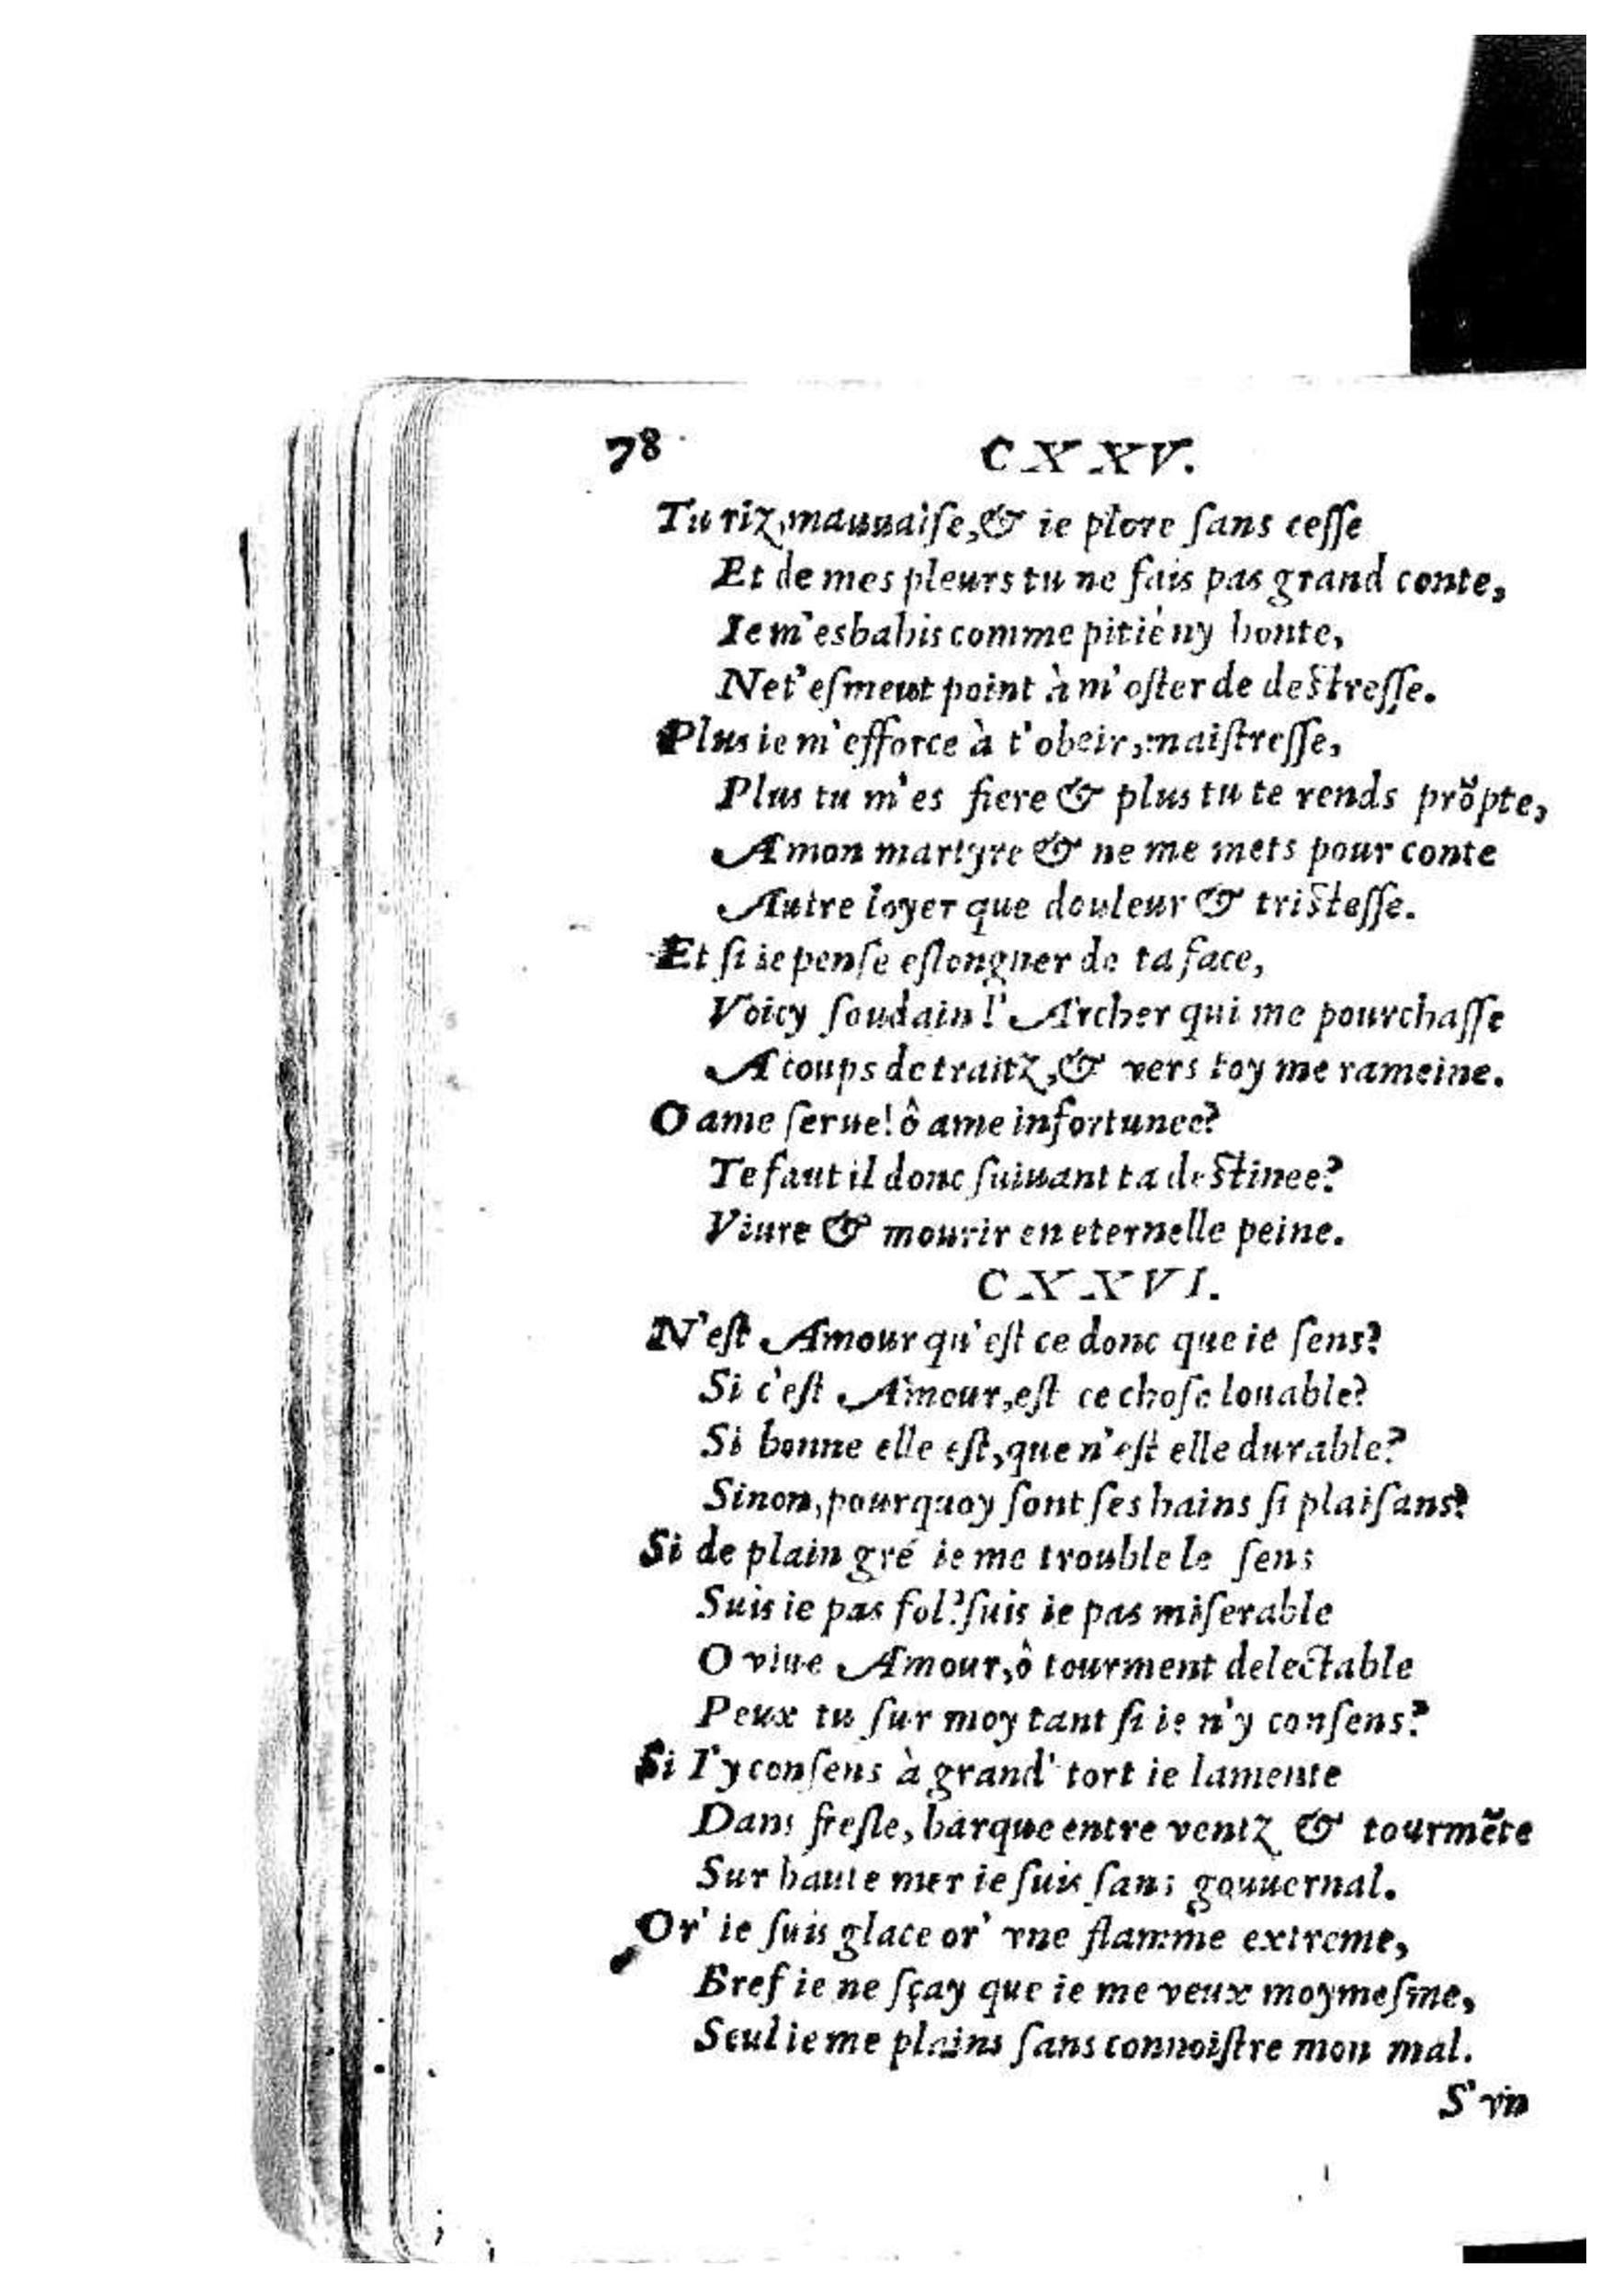 78 CXXV.
Tu riz, mauuaiſe, & ie plore ſans ceſſe
Et de mes pleurs tu ne fais pas grand conte,
Ie m'esbahis comme pitié ny honte,
Ne t'eſmeut point à m'oſter de deſtreſſe.
Plus ie m'efforce à t'obeir, maiſtreſſe,
Plus tu m'es fiere & plus tu te rends prõpte,
A mon martyre & ne me mets pour conte
Autre loyer que douleur & triſteſſe.
Et ſi ie penſe eſlongner de ta face,
Voicy ſoudain l'Archer qui me pourchaſſe
A coups de traitz, & vers toy me rameine.
O ame ſerue! ô ame infortunee?
Te faut il donc ſuiuant ta deſtinee?
Viure & mourir en eternelle peine.
CXXVI.
N'eſt Amour qu'eſt ce donc que ie ſens?
Si c'eſt Amour, eſt ce choſe louable?
Si bonne elle eſt, que n'eſt elle durable?
Sinon, pourquoy ſont ſes hains ſi plaiſans?
Si de plain gré ie me trouble le ſens
Suis ie pas fol? ſuis ie pas miſerable
O viue Amour, ô tourment delectable
Peux tu ſur moy tant ſi ie n'y conſens?
Si I'y conſens à grand' tort ie lamente
Dans freſle, barque entre ventz & tourmẽte
Sur haute mer ie ſuis ſans gouuernal.
Or' ie ſuis glace or' vne flamme extreme,
Bref ie ne ſçay que ie me veux moymeſme,
Seul ie me plains ſans connoiſtre mon mal.
S'vn